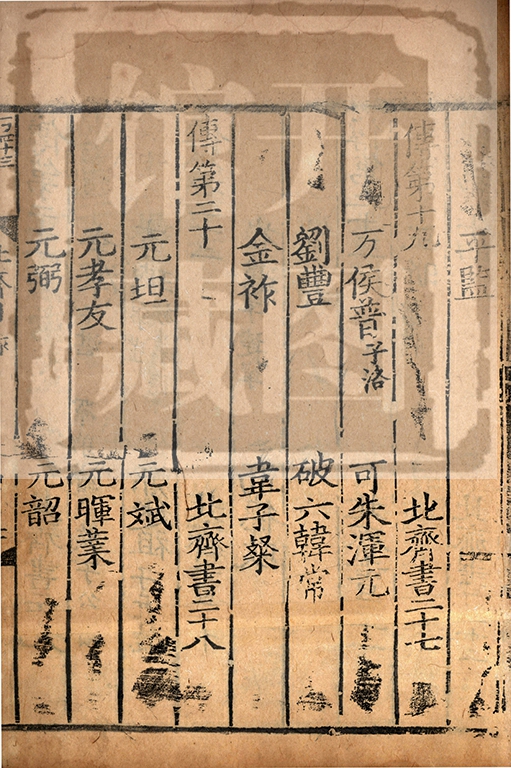 平監
傳第十九 北齊書二十七
万侯普子洛 可朱渾元
劉豐 破六韓常
金祚 韋子粲
傳第二十 北齊書二十八
元坦 元斌
元孝友 元暉業
元弼 元韶